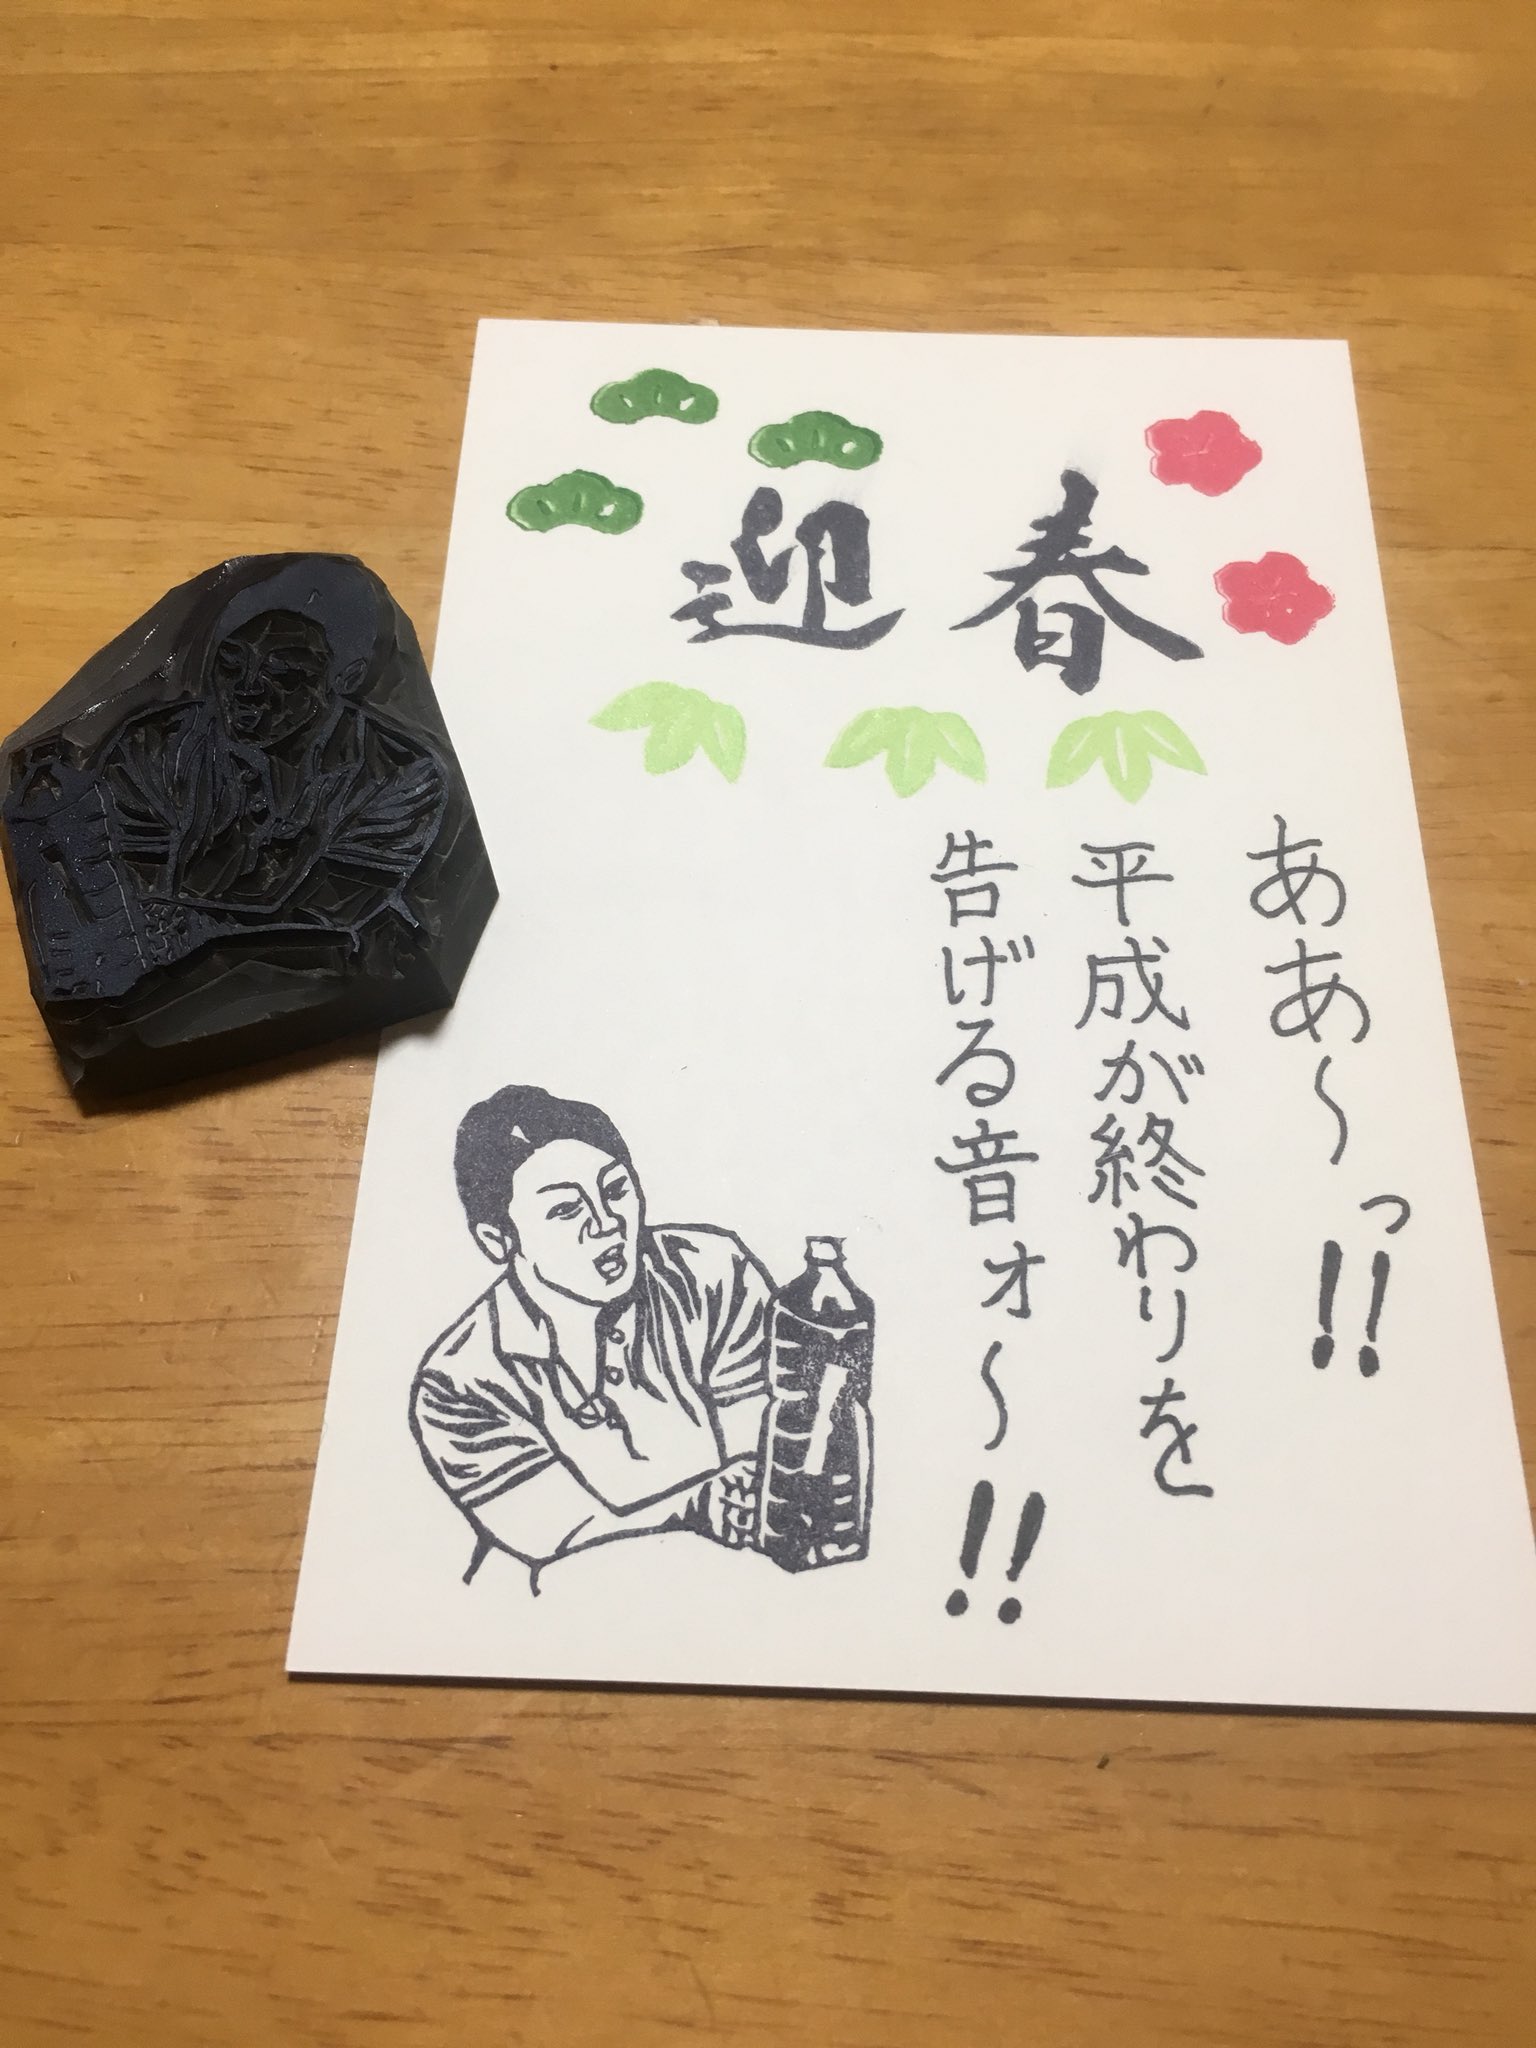 迎春
ああ〜っ!!
平成が終わりを
告げる音ォ〜!!